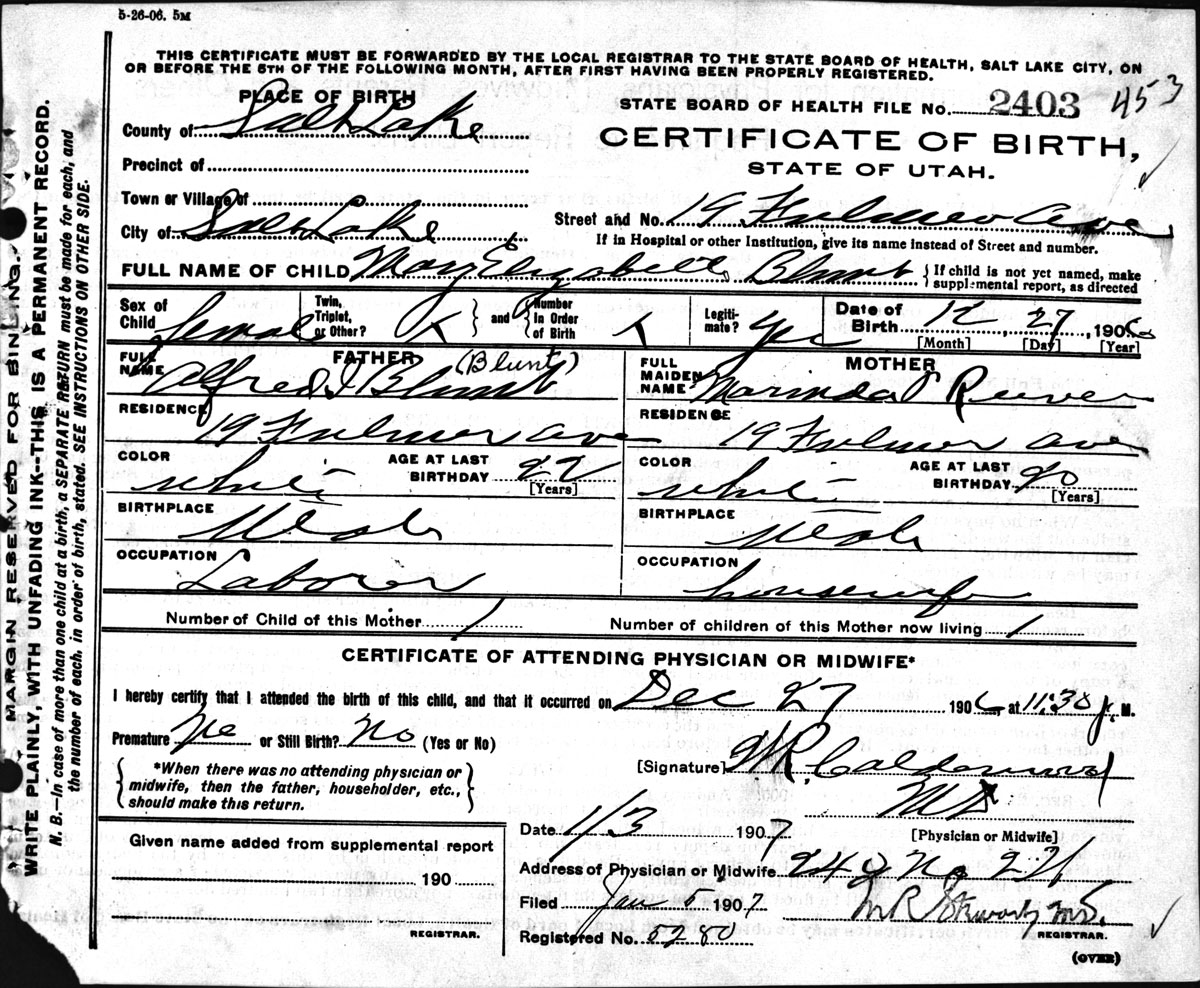 5-26-06. 5M
THIS CERTIFICATE MUST BE FORWARDED BY THE LOCAL REGISTRAR TO THE STATE BOARD OF HEALTH, SALT LAKE CITY, ON
OR BEFORE THE 5TH OF THE FOLLOWING MONTH, AFTER FIRST HAVING BEEN PROPERLY REGISTERED.
PLACE OF BIRTH
STATE BOARD OF HEALTH FILE No. 2403 453
County of Salt Lake
CERTIFICATE OF BIRTH,
Precinct of
STATE OF UTAH.
Town or Village of
Street and No. 19 Fulmer Ave
City of Salt Lake
If in Hospital or other Institution, give its name instead of Street and number.
FULL NAME OF CHILD May Elizabeth Blunt
If child is not yet named, make
supplemental report, as directed
Sex of Child female Twin, Triplet, or Other? and Number In Order of Birth Legiti-mate? Yes Date of Birth 12, 27, 1906
[Month] [Day] [Year]
FATHER (Blunt)
FULL NAME Alfred J Blunt
MOTHER
FULL MAIDEN NAME Marinda Reeve
RESIDENCE 19 Fulmer ave
RESIDENCE 19 Fulmer ave
COLOR white AGE AT LAST BIRTHDAY 22 [Years]
COLOR white AGE AT LAST BIRTHDAY 20 [Years]
BIRTHPLACE Utah
BIRTHPLACE Utah
OCCUPATION Laborer
OCCUPATION housewife
Number of Child of this Mother 1 Number of children of this Mother now living 1
CERTIFICATE OF ATTENDING PHYSICIAN OR MIDWIFE*
I hereby certify that I attended the birth of this child, and that it occurred on Dec 27 1906, at 11:30 P. M.
Premature No or Still Birth? No (Yes or No)
[Signature] Calderwood
MD
[Physician or Midwife]
*When there was no attending physician or
midwife, then the father, householder, etc.,
should make this return.
Date 1/3 1907
Given name added from supplemental report
190
REGISTRAR.
Address of Physician or Midwife
Filed Jan 5 1907
REGISTRAR.
Registered No. 8280
(OVER)
MARGIN RESERVED FOR BINDING.
WRITE PLAINLY, WITH UNFADING INK--THIS IS A PERMANENT RECORD.
N. B.—In case of more than one child at a birth, a SEPARATE RETURN must be made for each, and
the number of each, in order of birth, stated. SEE INSTRUCTIONS ON OTHER SIDE.